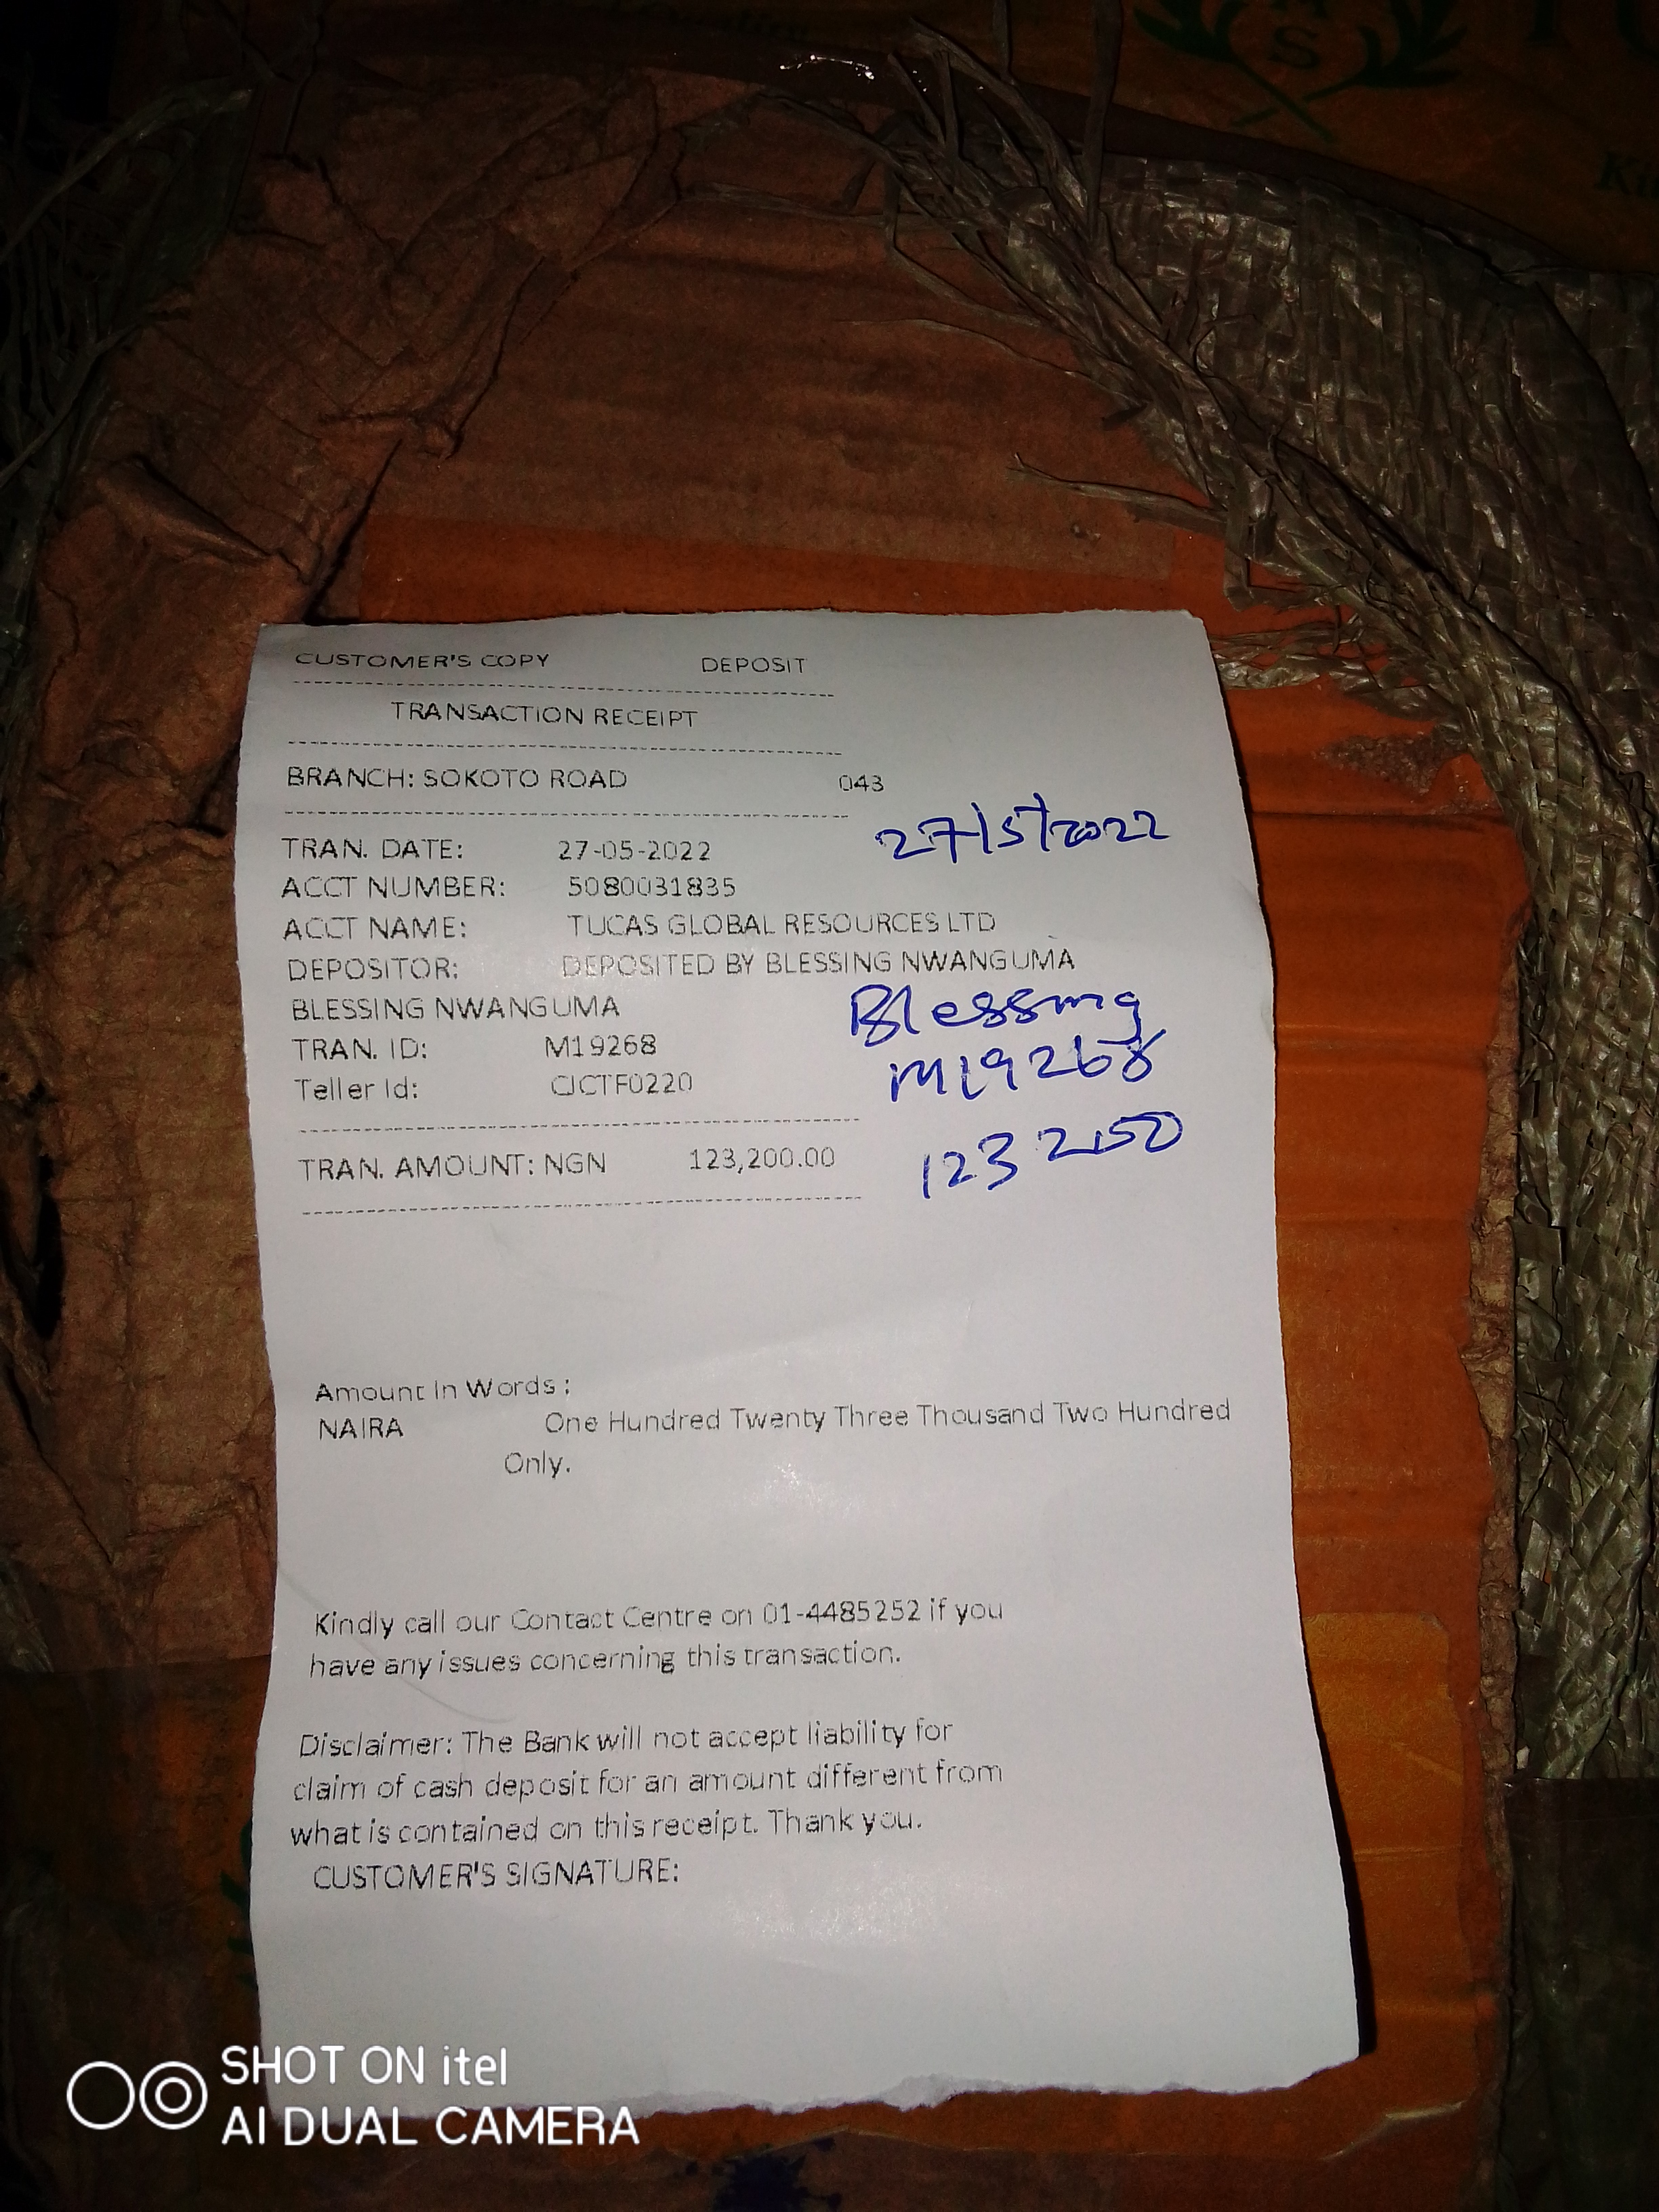 S
CUSTOMER'S COPY DEPOSIT
TRANSACTION RECEIPT
BRANCH: SOKOTO ROAD 043
27/5/2022
TRAN. DATE: 27-05-2022
ACCT NUMBER: 5080031835
ACCT NAME: TUCAS GLOBAL RESOURCES LTD
DEPOSITOR: DEPOSITED BY BLESSING NWANGUMA
BLESSING NWANGUMA Blessing
TRAN. ID: M19268 M19268
Teller Id: CJCTF0220
TRAN. AMOUNT: NGN 123,200.00
Amount In Words :
NAIRA One Hundred Twenty Three Thousand Two Hundred
Only.
Kindly call our Contact Centre on 01-4485252 if you
have any issues concerning this transaction.
Disclaimer: The Bank will not accept liability for
claim of cash deposit for an amount different from
what is contained on this receipt. Thank you.
CUSTOMER'S SIGNATURE:
SHOT ON itel
AI DUAL CAMERA